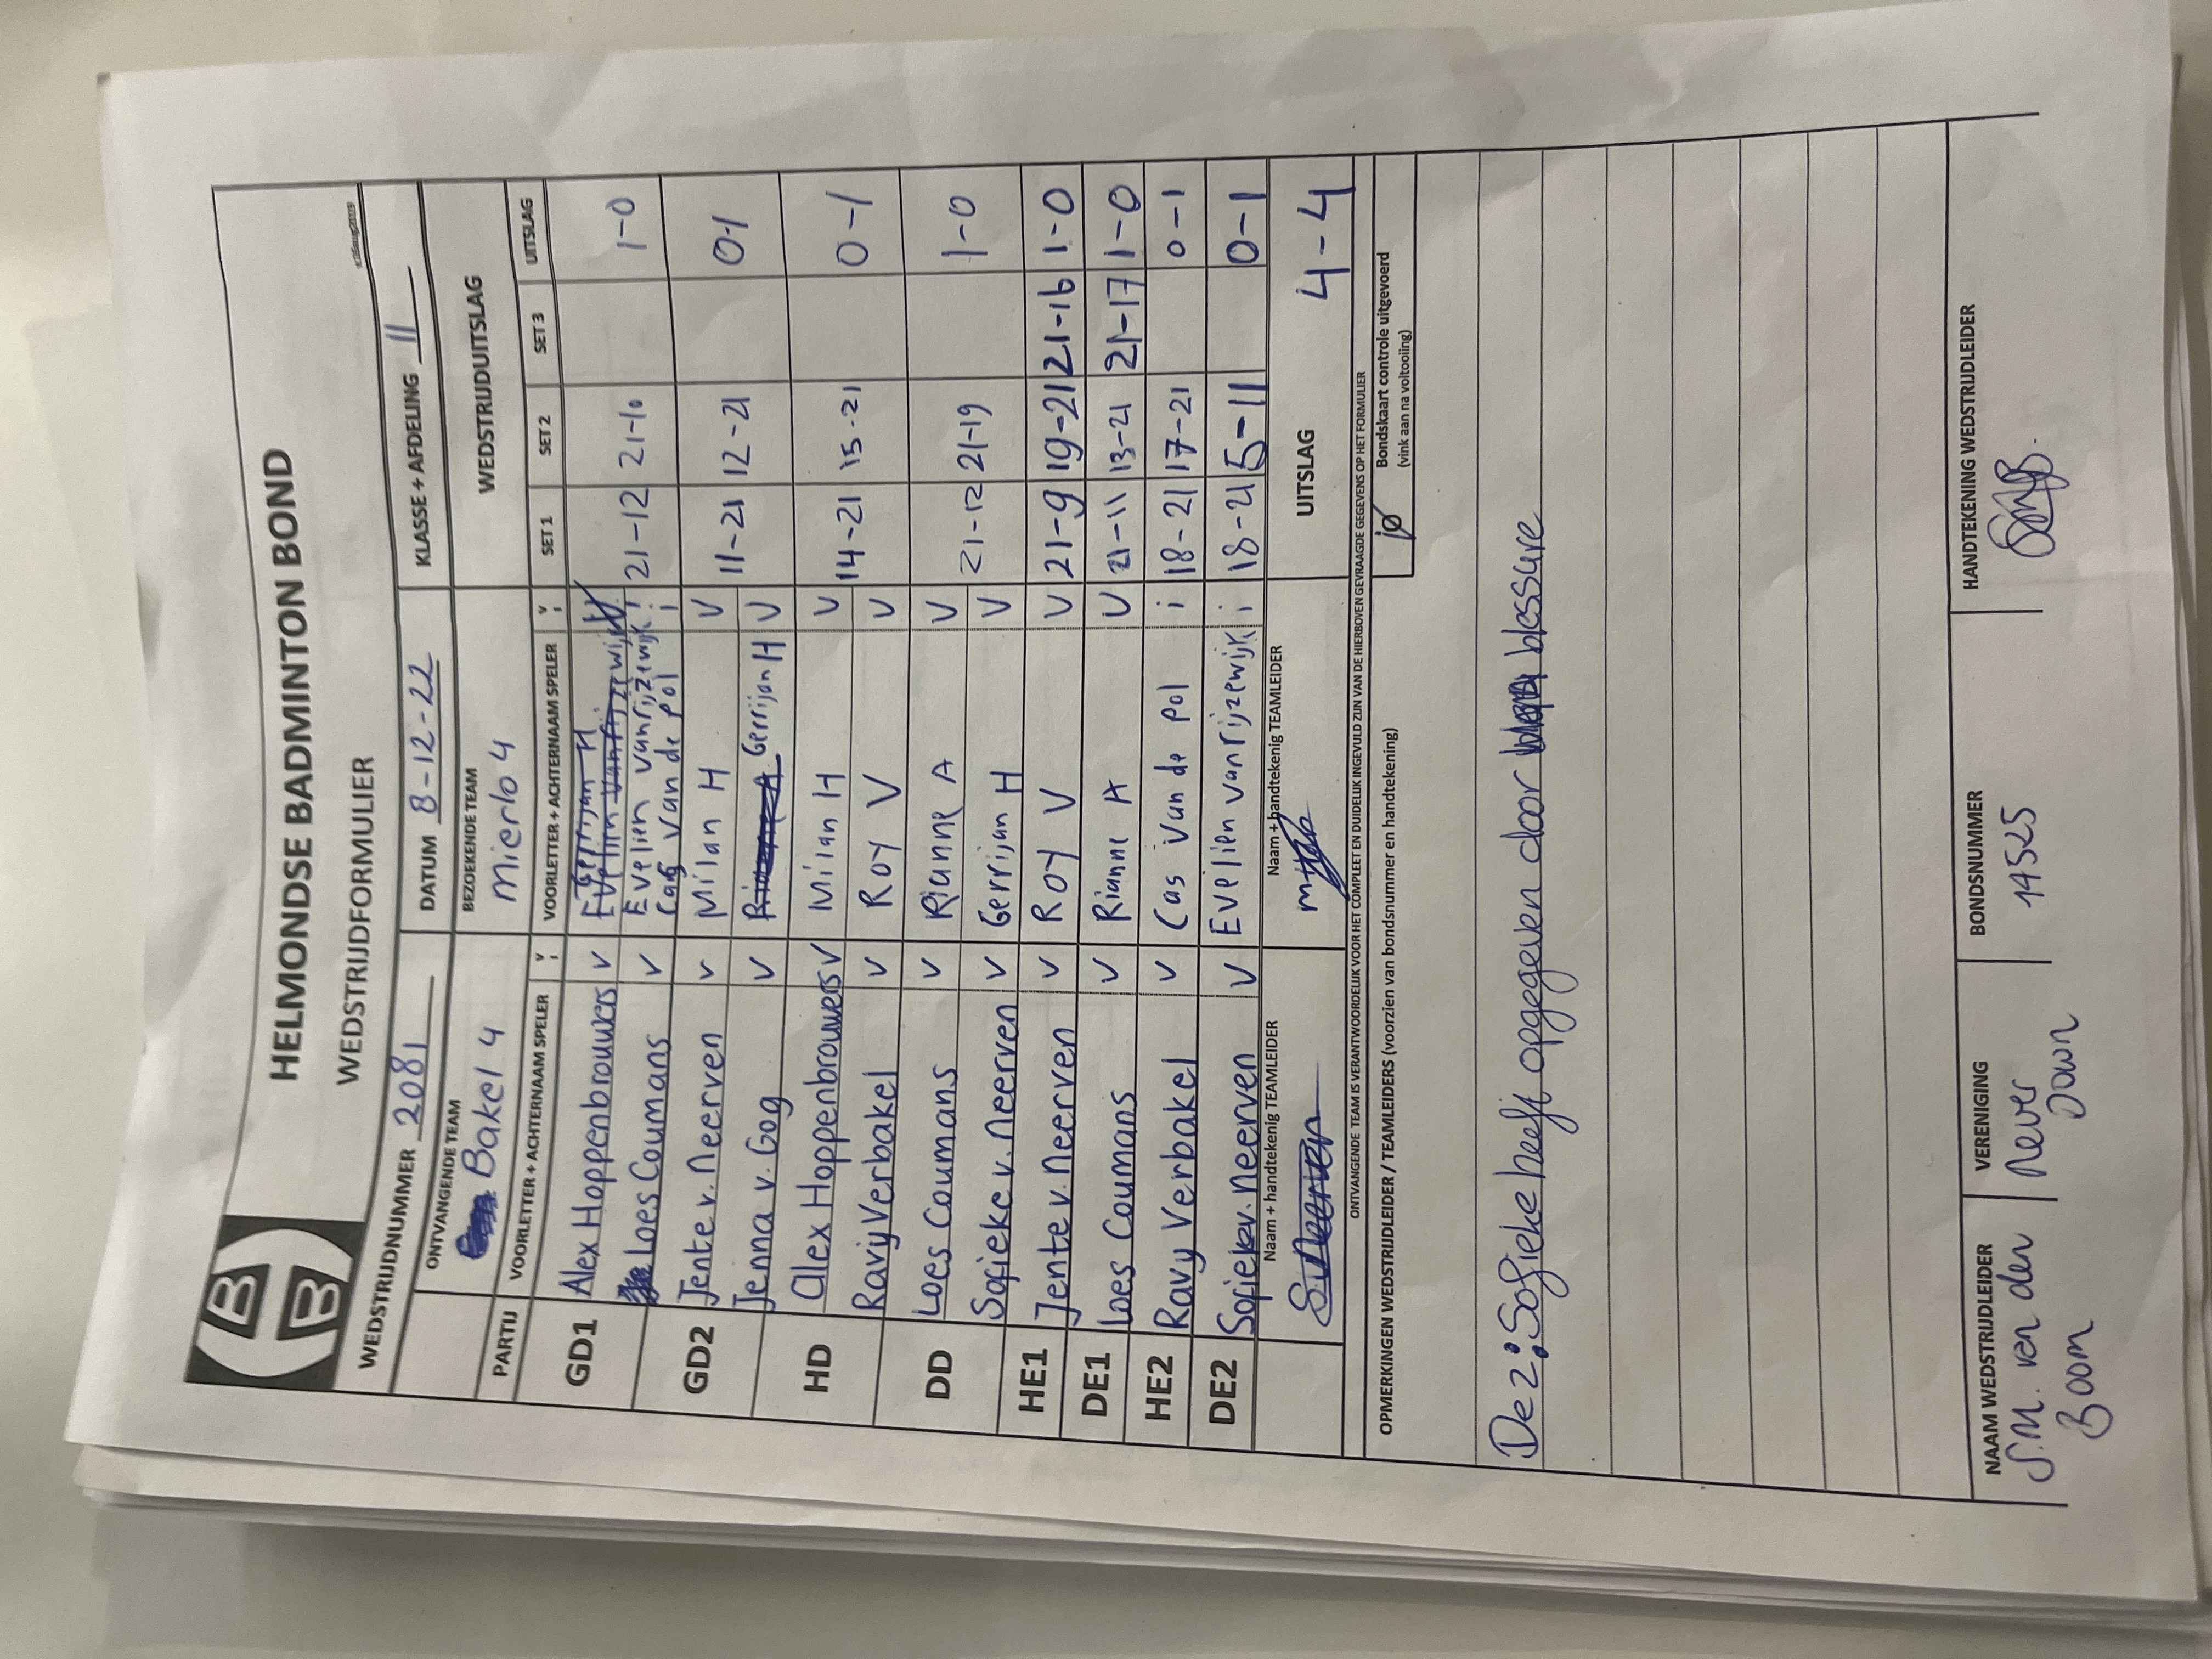 HELMONDSE BADMINTON BOND
WEDSTRIJDFORMULIER
WEDSTRIJDNUMMER 2081 DATUM 8-12-22 KLASSE + AFDELING 11
ONTVANGENDE TEAM BEZOEKENDE TEAM WEDSTRIJDUITSLAG
Bakel 4 Mierlo 4
PARTIJ VOORLETTER + ACHTERNAAM SPELER V i VOORLETTER + ACHTERNAAM SPELER V i SET 1 SET 2 SET 3 UITSLAG
GD1 Alex Hoppenbrouwers V Gerrijan H
Evelien vanrijzewijk i
Loes Coumans V Cas van de pol i 21-12 21-10 1-0
GD2 Jente v. Neerven V Milan H V
Jenna v. Gog V Gerrijan H V 11-21 12-21 0-1
HD Alex Hoppenbrouwers V Milan H V
Ravy Verbakel V Roy V V 14-21 15-21 0-1
DD Loes Coumans V Rianne A V
Sofieke v. Neerven V Gerrijan H V 21-12 21-19 1-0
HE1 Jente v. Neerven V Roy V V 21-9 19-21 21-16 1-0
DE1 Loes Coumans V Rianne A V 21-11 13-21 21-17 1-0
HE2 Ravy Verbakel V Cas van de pol i 18-21 17-21 0-1
DE2 Sofieke v. Neerven V Evelien vanrijzewijk i 18-21 5-11 0-1
Naam + handtekenig TEAMLEIDER Naam + handtekenig TEAMLEIDER UITSLAG 4-4
S.v.Neerven
ONTVANGENDE TEAM IS VERANTWOORDELIJK VOOR HET COMPLEET EN DUIDELIJK INGEVULD ZIJN VAN DE HIERBOVEN GEVRAAGDE GEGEVENS OP HET FORMULIER
OPMERKINGEN WEDSTRIJDLEIDER / TEAMLEIDERS (voorzien van bondsnummer en handtekening)
Bondskaart controle uitgevoerd
(vink aan na voltooiing)
De2: Sofieke heeft opgegeven door blessure
NAAM WEDSTRIJDLEIDER VERENIGING BONDSNUMMER HANDTEKENING WEDSTRIJDLEIDER
S.M. van den Boom Never Down 14525